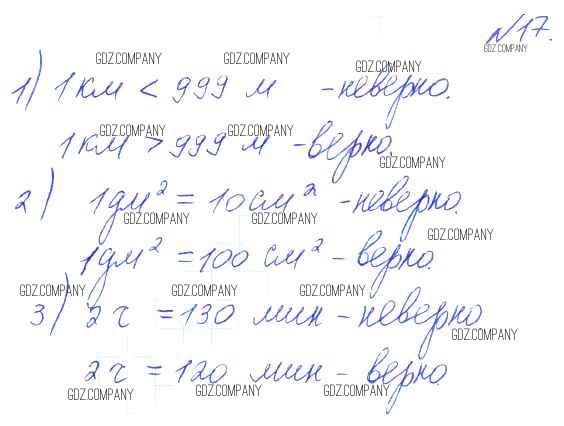 №17.
GDZ.COMPANY
GDZ.COMPANY GDZ.COMPANY GDZ.COMPANY
1) 1 км < 999 м - неверно.
GDZ.COMPANY GDZ.COMPANY
1 км > 999 м - верно.
GDZ.COMPANY
2) 1 дм² = 10 см² - неверно.
GDZ.COMPANY GDZ.COMPANY GDZ.COMPANY
1 дм² = 100 см² - верно.
GDZ.COMPANY GDZ.COMPANY GDZ.COMPANY
3) 2 ч = 130 мин - неверно
GDZ.COMPANY
2 ч = 120 мин - верно.
GDZ.COMPANY GDZ.COMPANY GDZ.COMPANY